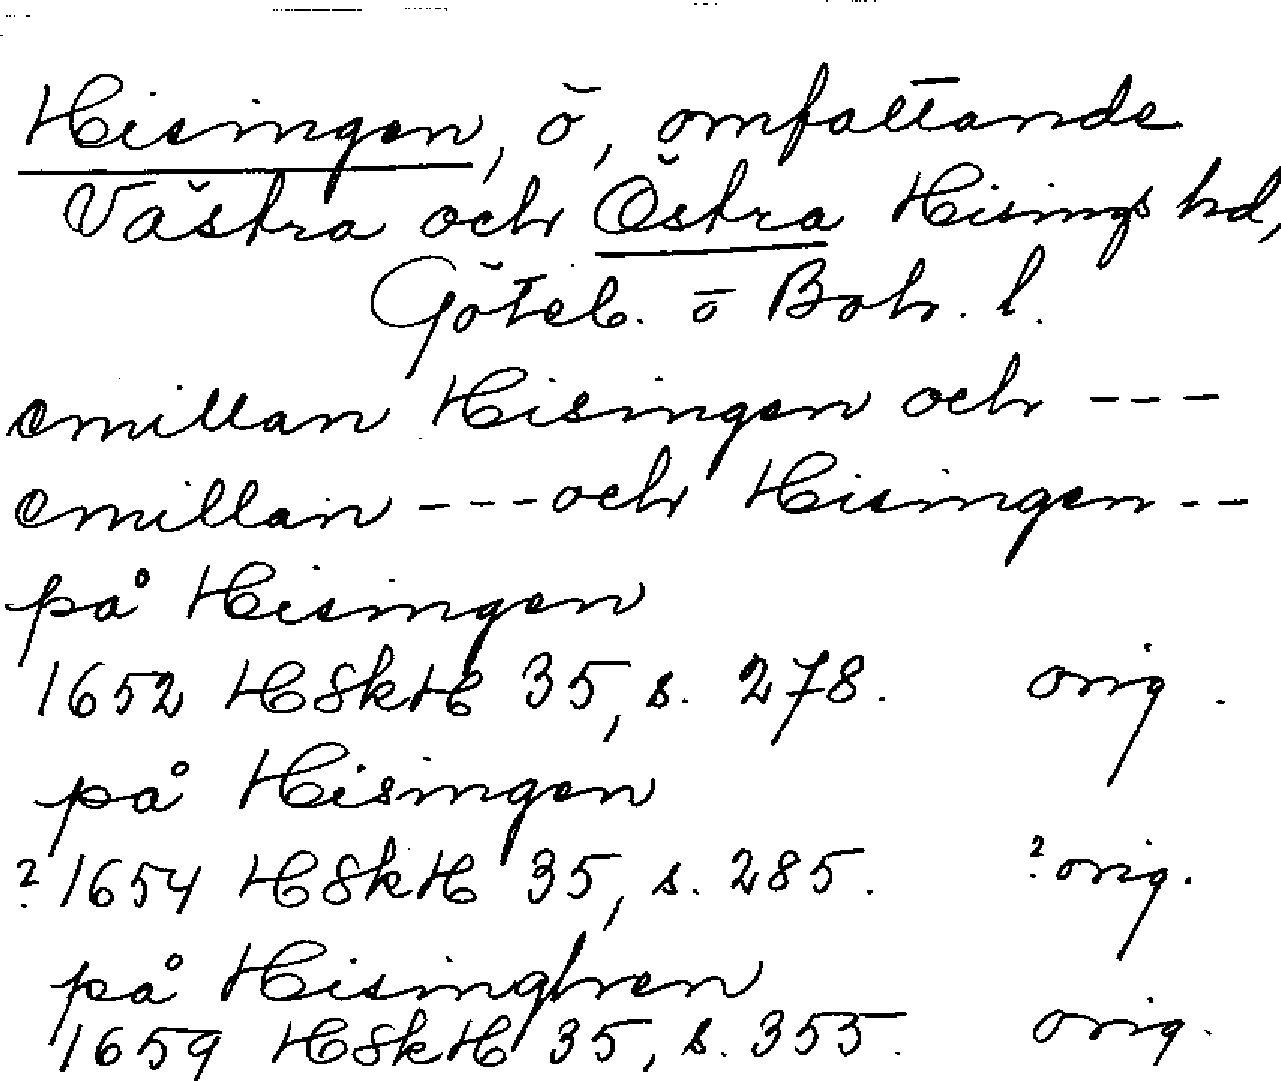 Hisingen, ö, omfattande
Västra och Östra Hisings hd,
Göteb. o Boh. l.
emillan Hisingen och ---
emillan --- och Hisingen --
på Hisingen
1652 HSkH 35, s. 278. orig.
på Hisingen
? 1654 HSkH 35, s. 285. ? orig.
på Hisinghen
1659 HSkH 35, s. 355. orig.